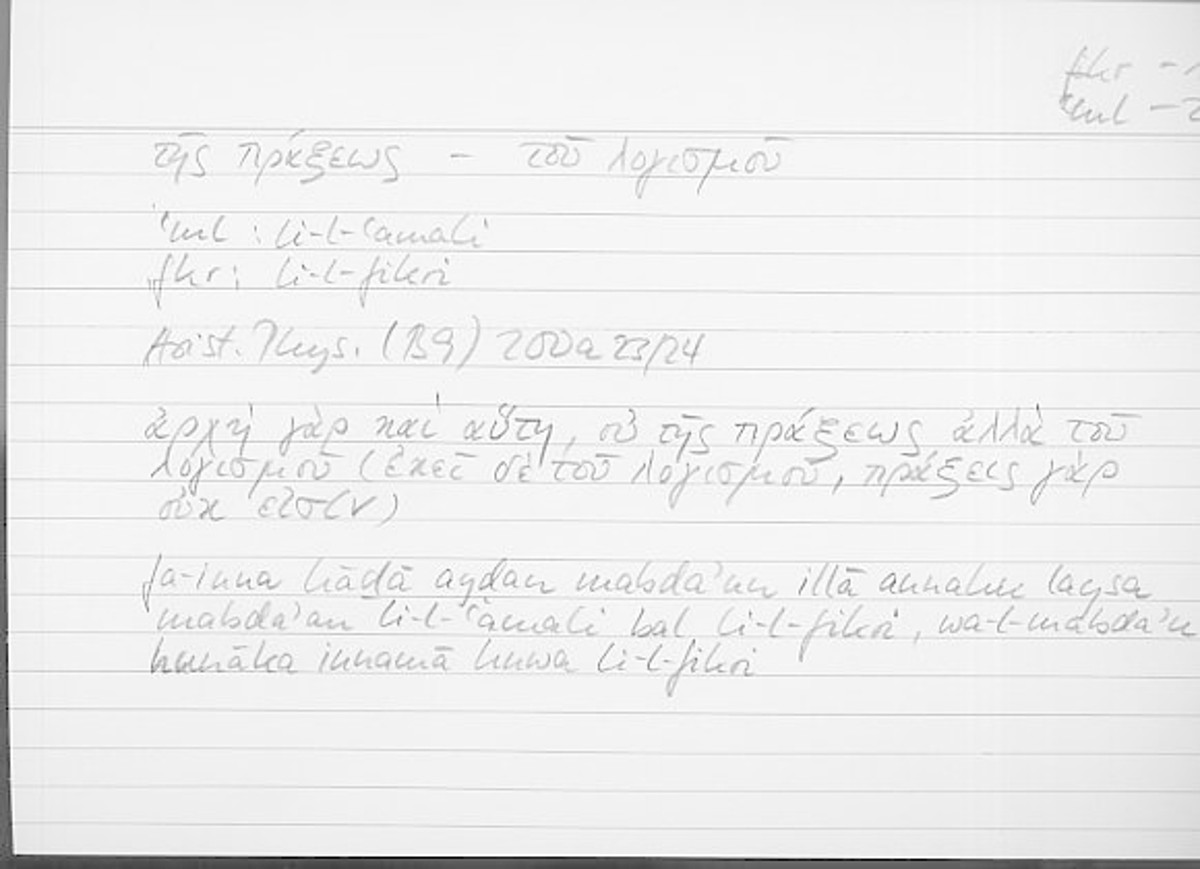 fkr - 1
ʿml - 2
τῆς πράξεως - τοῦ λογισμοῦ
ʿml : li-l-ʿamali
fkr : li-l-fikri
Arist. Phys. (B9) 200a 23/24
ἀρχὴ γὰρ καὶ αὕτη, οὐ τῆς πράξεως ἀλλὰ τοῦ
λογισμοῦ (ἐκεῖ δὲ τοῦ λογισμοῦ, πράξεις γὰρ
οὐκ εἰσίν)
fa-inna hāḏā ayḍan mabda'un illā annahu laysa
mabda'an li-l-ʿamali bal li-l-fikri, wa-l-mabda'u
hunāka innamā huwa li-l-fikri